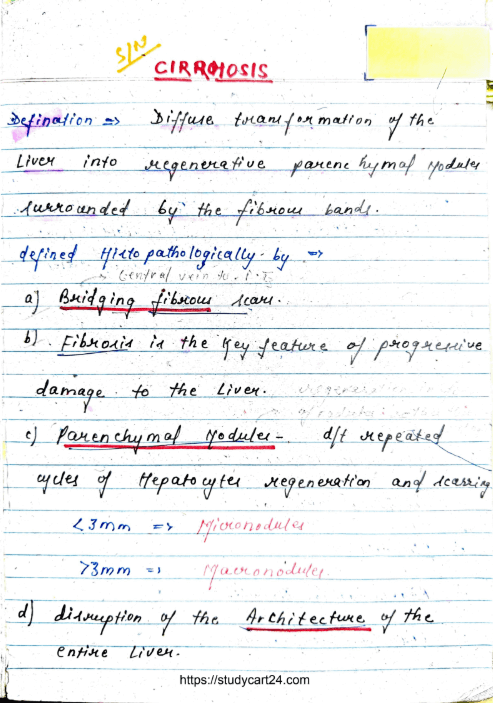 S/N
CIRRHOSIS
Defination => Diffuse transformation of the
Liver into regenerative parenchymal Nodules
surrounded by the fibrous bands.
defined Histopathologically by =>
Central vein to
a) Bridging fibrous scars.
b). Fibrosis is the Key feature of progressive
damage to the Liver.
c) Parenchymal Nodules - d/t repeated
cycles of Hepatocytes regeneration and scarring
<3mm => Micronodules
>3mm => Macronodules
d) disruption of the Architecture of the
entire Liver.
https://studycart24.com